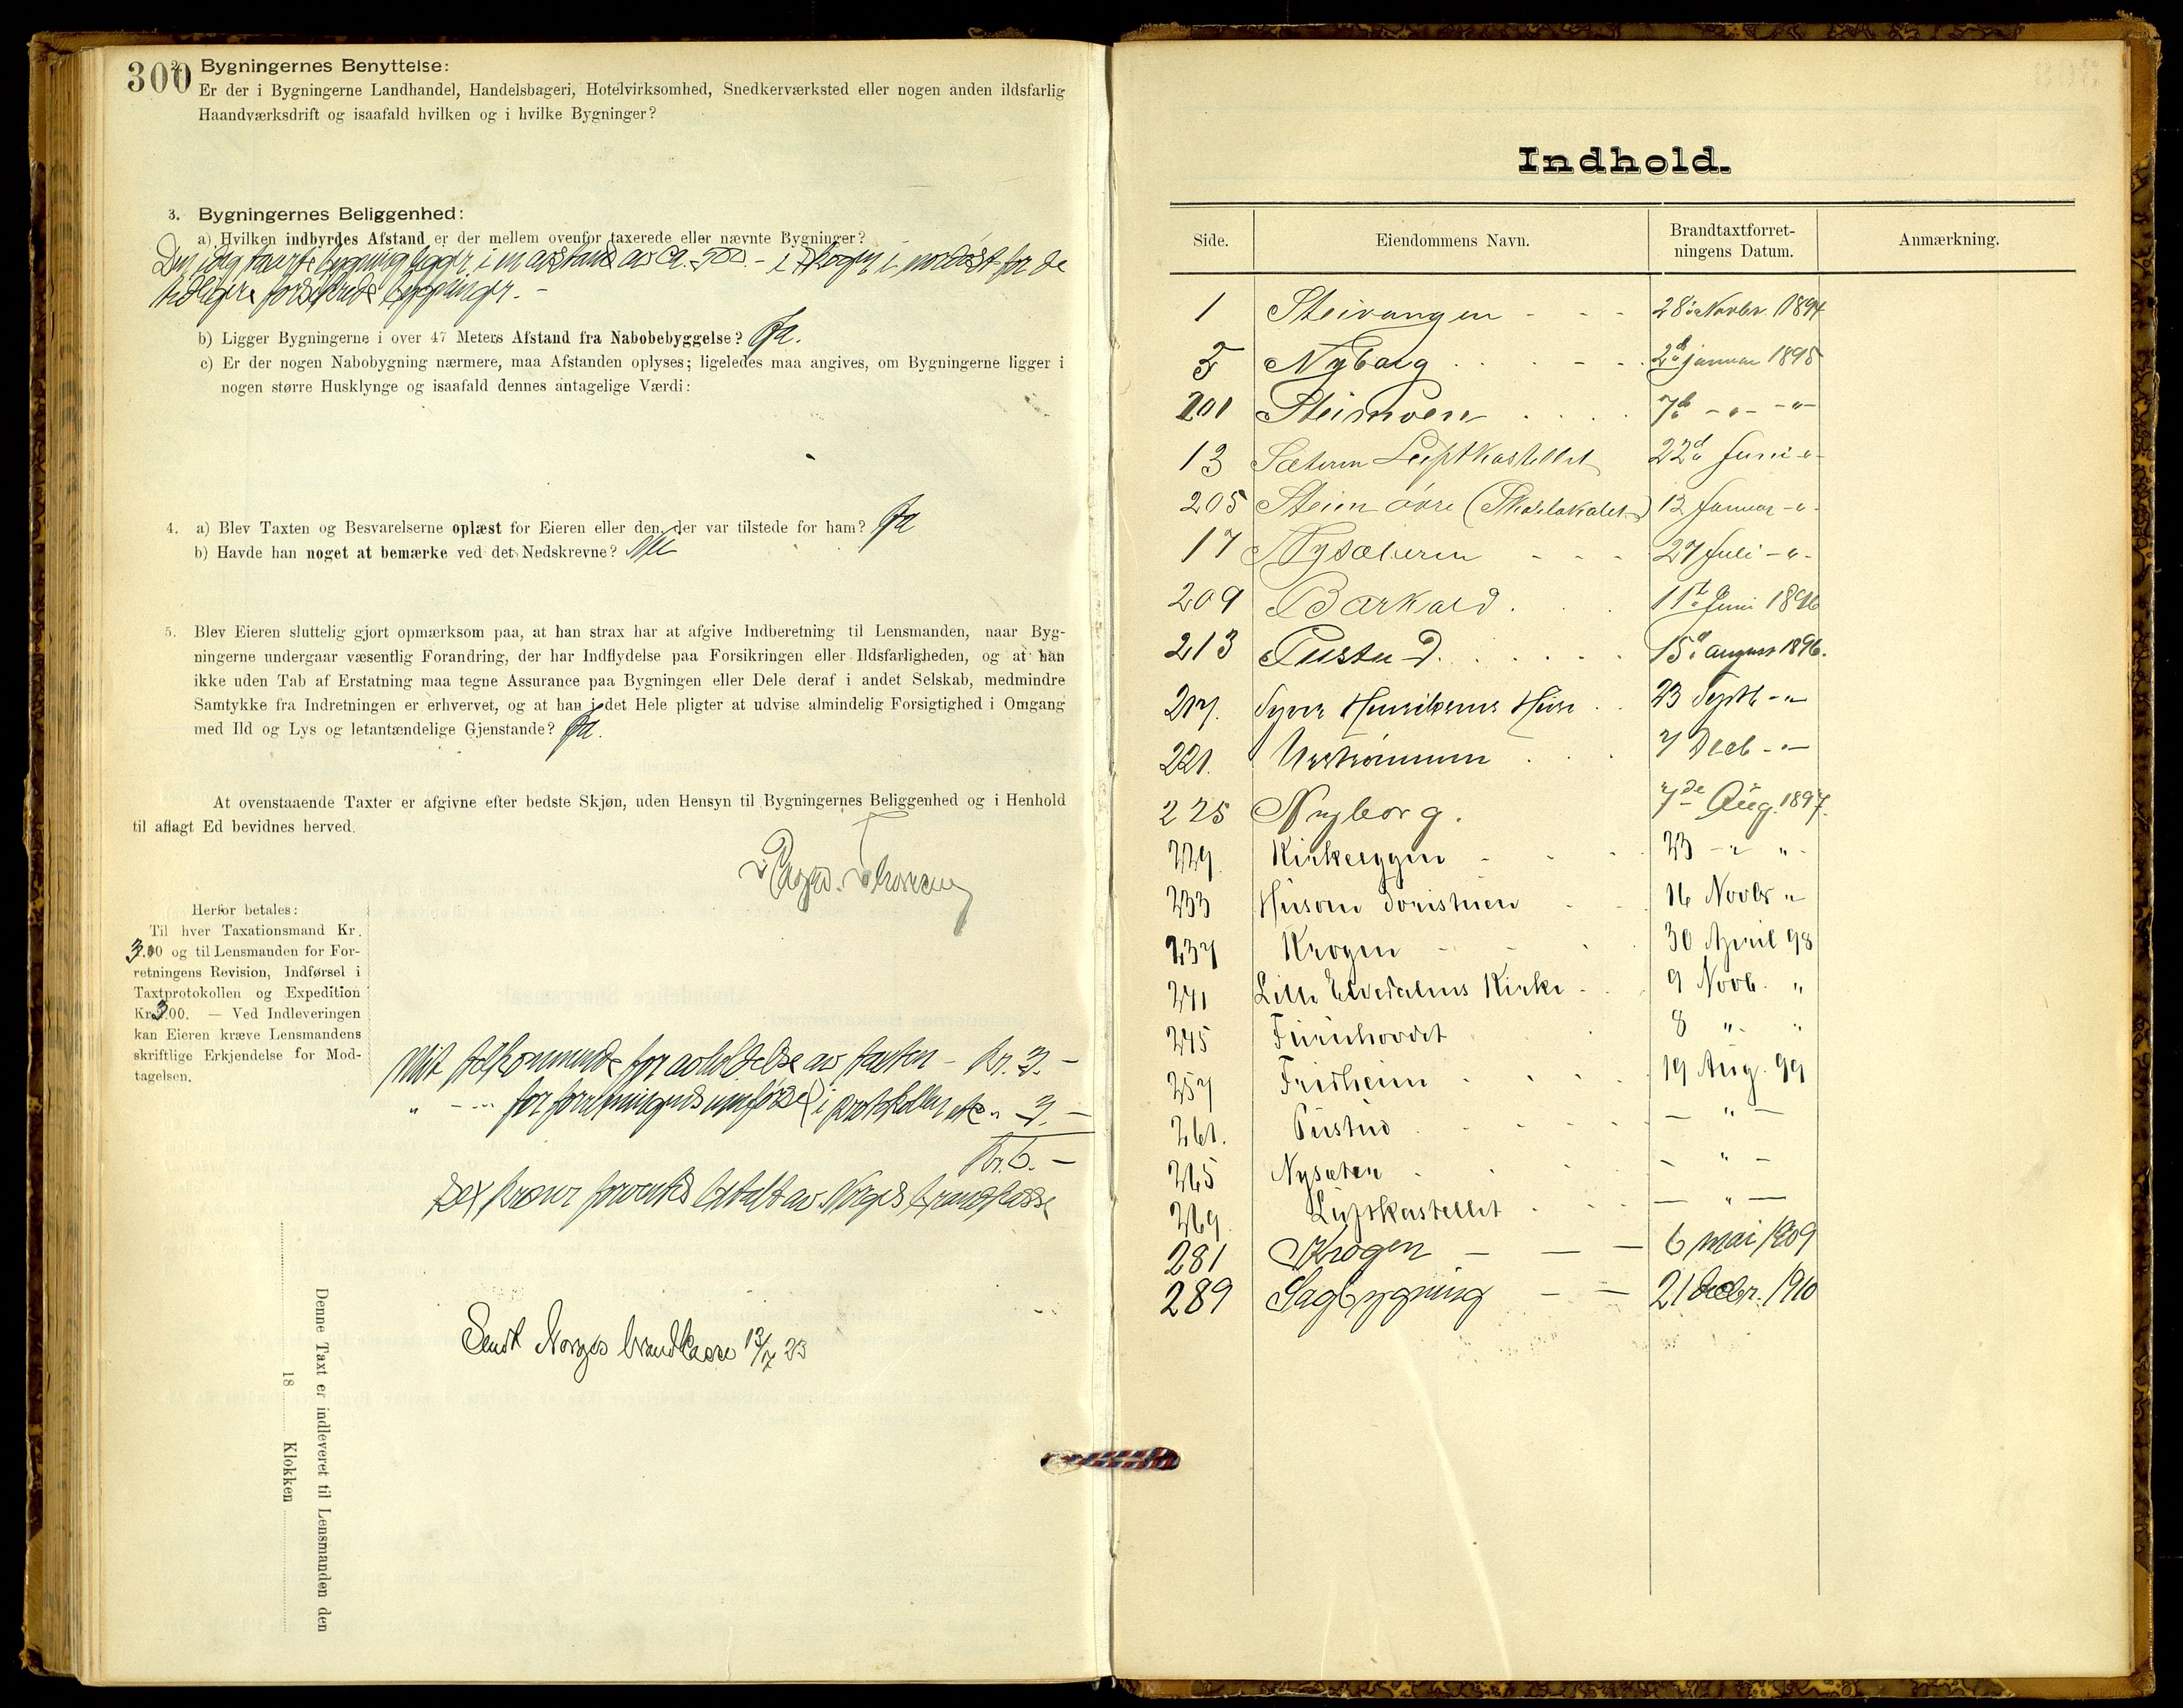 300
2. Bygningernes Benyttelse:
Er der i Bygningerne Landhandel, Handelsbageri, Hotelvirksomhed, Snedkerværksted eller nogen anden ildsfarlig
Haandværksdrift og isaafald hvilken og i hvilke Bygninger?
3. Bygningernes Beliggenhed:
a) Hvilken indbyrdes Afstand er der mellem ovenfor taxerede eller nævnte Bygninger?
Den idag takserte bygning ligger i en avstand av ca. 500.- i skogen i nordøst for de
tidligere forsikrede bygninger. -
b) Ligger Bygningerne i over 47 Meters Afstand fra Nabobebyggelse? Ja.
c) Er der nogen Nabobygning nærmere, maa Afstanden oplyses; ligeledes maa angives, om Bygningerne ligger i
nogen større Husklynge og isaafald dennes antagelige Værdi:
4. a) Blev Taxten og Besvarelserne oplæst for Eieren eller den, der var tilstede for ham? Ja
b) Havde han noget at bemærke ved det Nedskrevne? Nei
5. Blev Eieren sluttelig gjort opmærksom paa, at han strax har at afgive Indberetning til Lensmanden, naar Byg-
ningerne undergaar væsentlig Forandring, der har Indflydelse paa Forsikringen eller Ildsfarligheden, og at han
ikke uden Tab af Erstatning maa tegne Assurance paa Bygningen eller Dele deraf i andet Selskab, medmindre
Samtykke fra Indretningen er erhvervet, og at han i det Hele pligter at udvise almindelig Forsigtighed i Omgang
med Ild og Lys og letantændelige Gjenstande? Ja.
At ovenstaaende Taxter er afgivne efter bedste Skjøn, uden Hensyn til Bygningernes Beliggenhed og i Henhold
til aflagt Ed bevidnes herved.
Herfor betales:
Til hver Taxationsmand Kr.
3.00 og til Lensmanden for For-
retningens Revision, Indførsel i
Taxtprotokollen og Expedition
Kr. 3.00. — Ved Indleveringen
kan Eieren kræve Lensmandens
skriftlige Erkjendelse for Mod-
tagelsen.
Mit tilkommende for avholdelse av taxten - Kr. 3.-
" - - for forretningens innførsel i protokollen etc " 3.-
Kr. 6.-
Sex kroner forventes betalt av Norges brandkasse
Sendt Norges brandkasse 12/7 23
Denne Taxt er indleveret til Lensmanden den
18 Klokken
Indhold.
Side. Eiendommens Navn. Brandtaxtforret-
ningens Datum. Anmærkning.
1 Steivangen - - - 28de Novbr. 1894
5 Nyborg . . - - 2de januar 1895
201 Steimoen . . . . 7de - " - - " -
13 Sæteren Luftkastellet 22de Juni - " -
205 Steien øvre (Skolelokalet) 12 Januar - " -
17 Nysæteren - - - 27 Juli - " -
209 Barkald . . . 11te Juni 1896
213 Pustud . . . . . 15de august 1896.
217. Syver Henriksens Huse . . 23 Septb - " -
221. Urstrømmen . . . 7 Decb - " -
225 Nyborg. 7de Aug. 1897.
229 Kirkeeggen - - - 23 - " " -
233 - - 16 Novbr "
237 Krogen - - - 30 April 98
241 Lille Elvedalens Kirke - . 9 Novb. "
245 Furuhovdet . 8 " "
257 Fridheim . . . . 19 Aug. 99
261. Pustud . . . . — " —
265 Nysæter . . . - " -
269. Luftkastellet . . . — " —
281 Krogen — — — 6 mai 1909
289 Sagbygning - — 21 decbr. 1910